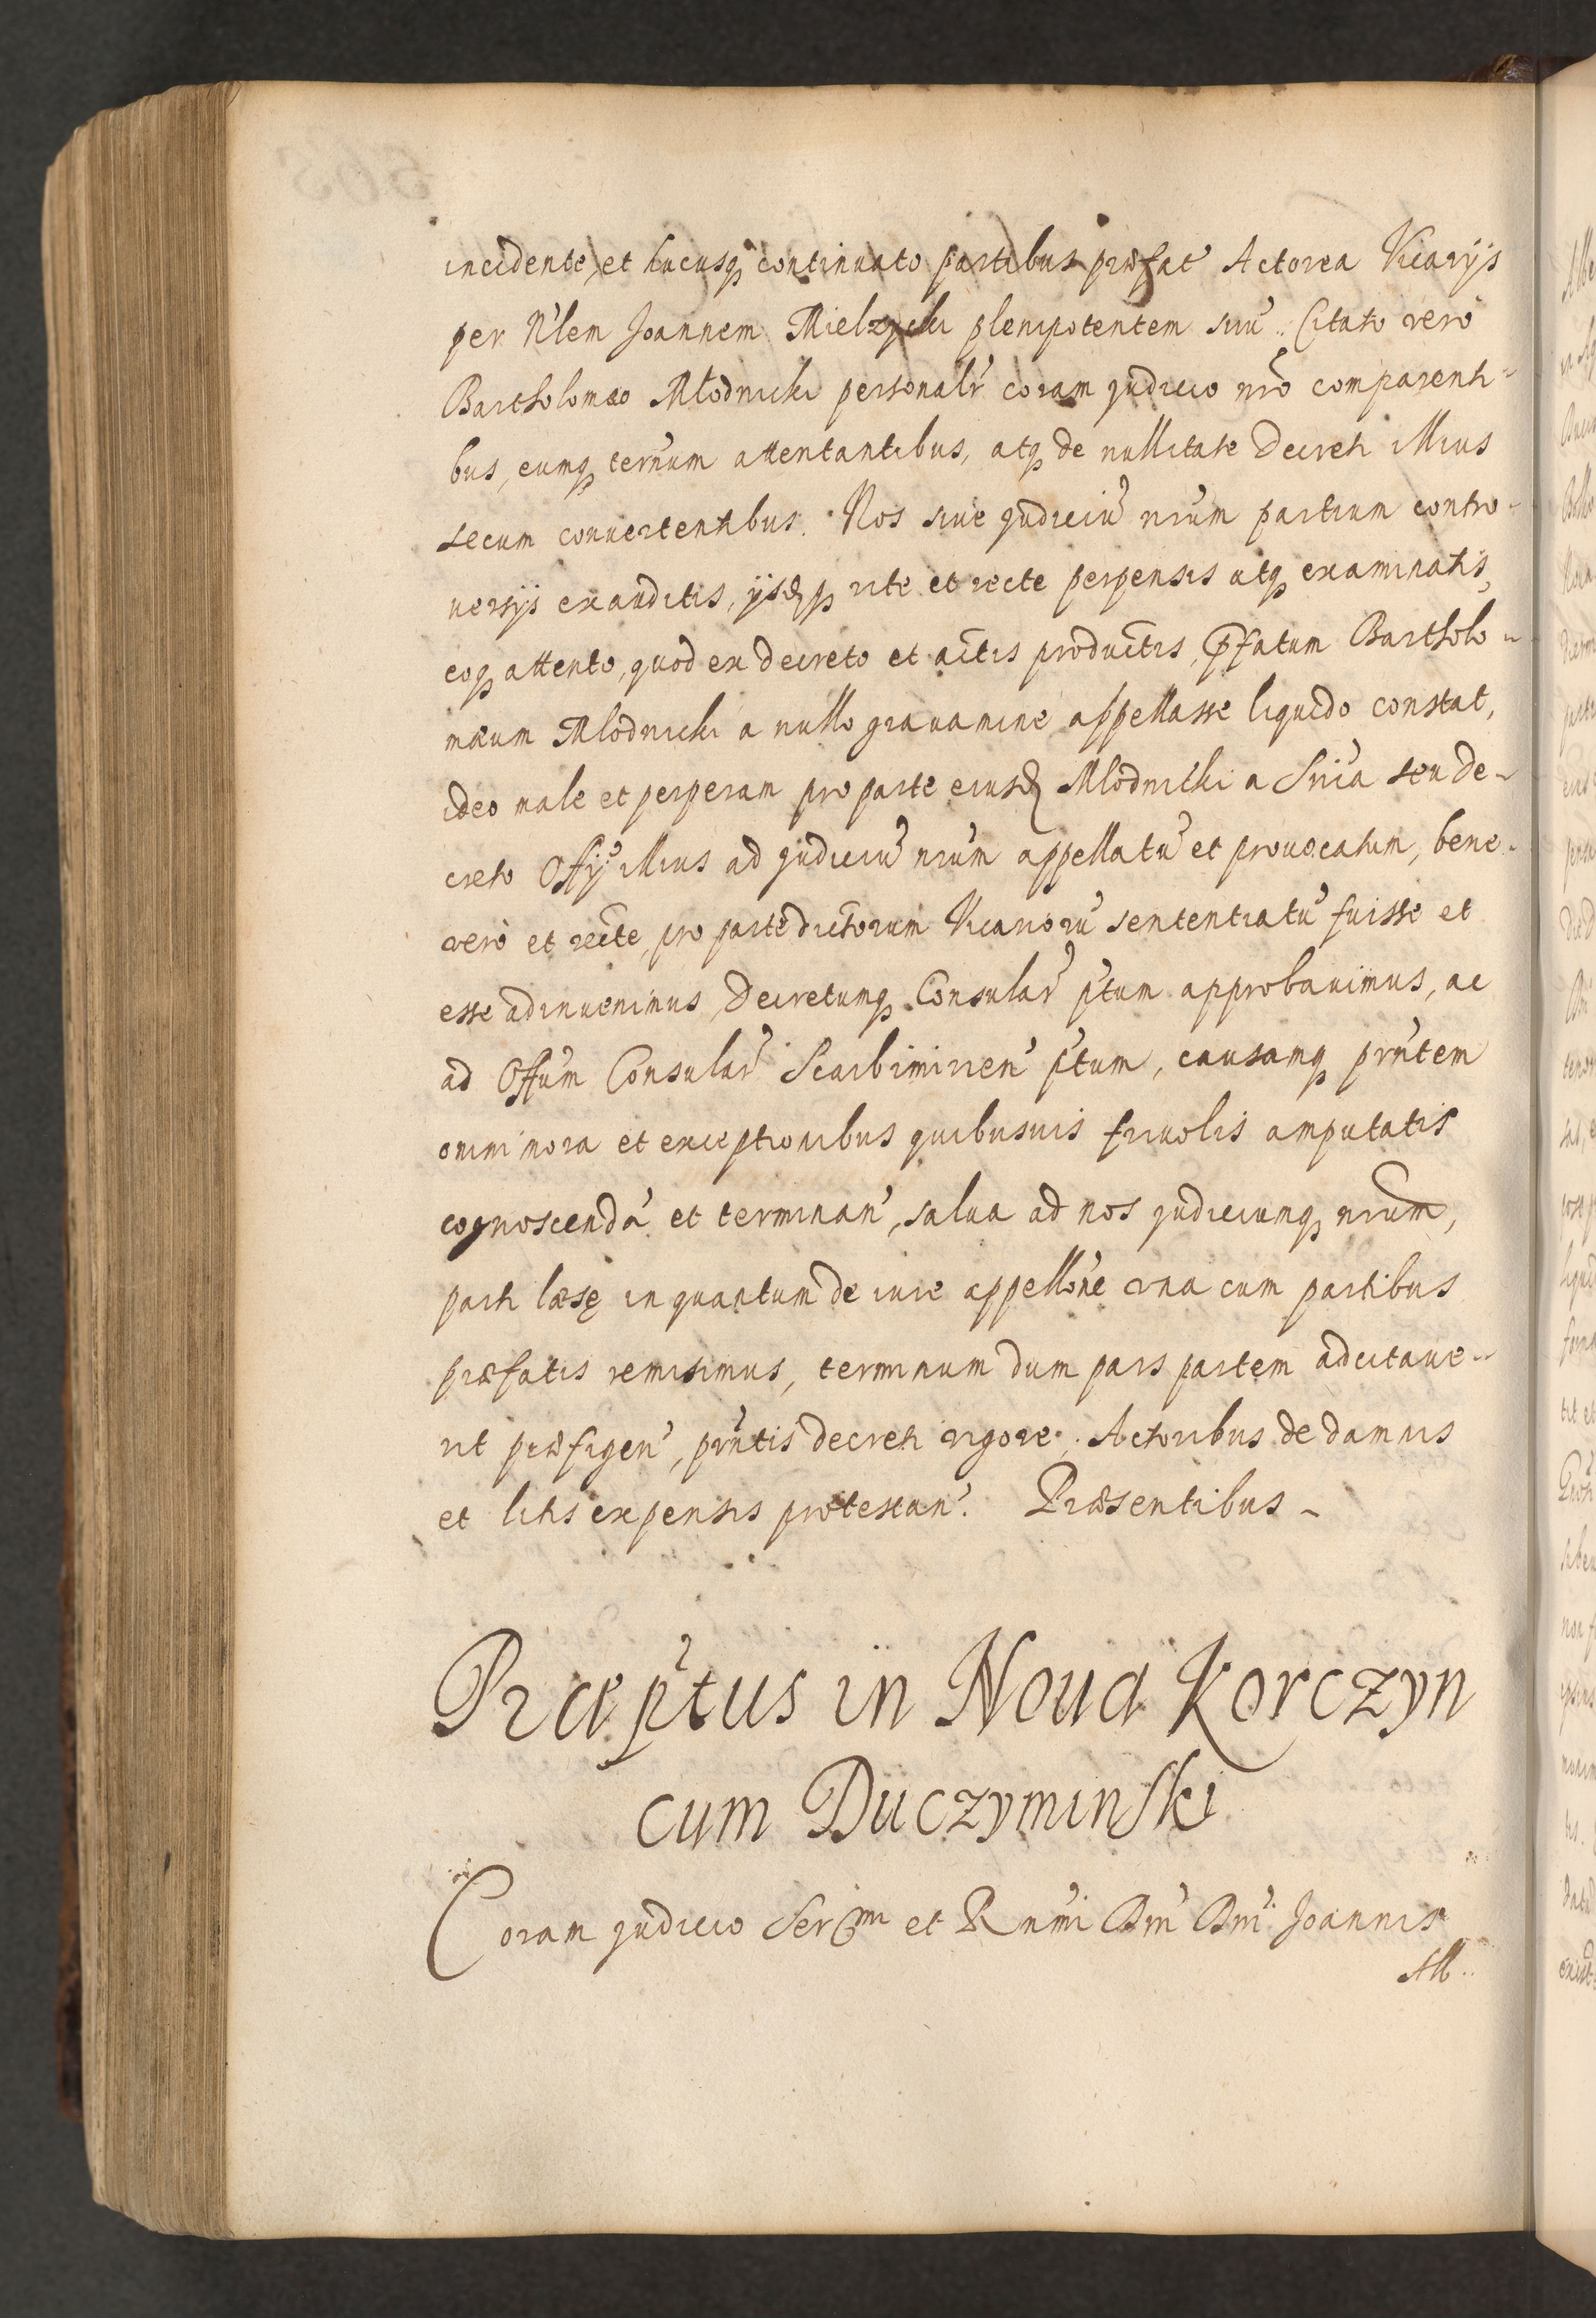 incidente, et hucusq continuato partibus præfat' Actorea Vicarijs
per N'lem Joannem Mielzycki plenipotentem suu' Citato vero
Bartholomæo Młodnicki personalr' coram Judicio nro comparenti-
bus, eumq ter'num attentantibus, atq de nullitate Decreti illius
secum conuertentibus. Nos siue Judiciu' nrum partium contro-
uersijs exauditis, ijsdq rite et recte perpensis atq examinatis,
eoq attento, quod ex decreto et actis productis, pfatum Bartholo-
mæum Mlodnicki a nullo grauamine appellasse liquido constat,
ideo male et perperam pro parte eiusd Mlodnicki a Snia seu de-
creto Offy illius ad Judiciu' nrum appellatu' et prouocatum, bene
vero et recte, pro parte dictorum Vicarioru' sententiatu' fuisse et
esse adinuenimus, Decretumq Consular' ptum approbauimus, ac
ad Offum Consular' Scarbimirien' ptum, causamq prntem
omni mora et exceptionibus quibusuis friuolis amputatis
cognoscenda' et terminan', salua ad nos Judiciumq nrum,
parti læsę in quantum de iure appellone vna cum partibus
præfatis remisimus, terminum dum pars partem adcitaue-
rit præfigen', prntis decreti vigore. Actoribus de damnis
et litis expensis protestan'. Præsentibus -
Præptus in Noua Korczyn
cum Duczyminski
Coram Judicio Serm̃i et Rnmi Dni Dni Joannis
Alb